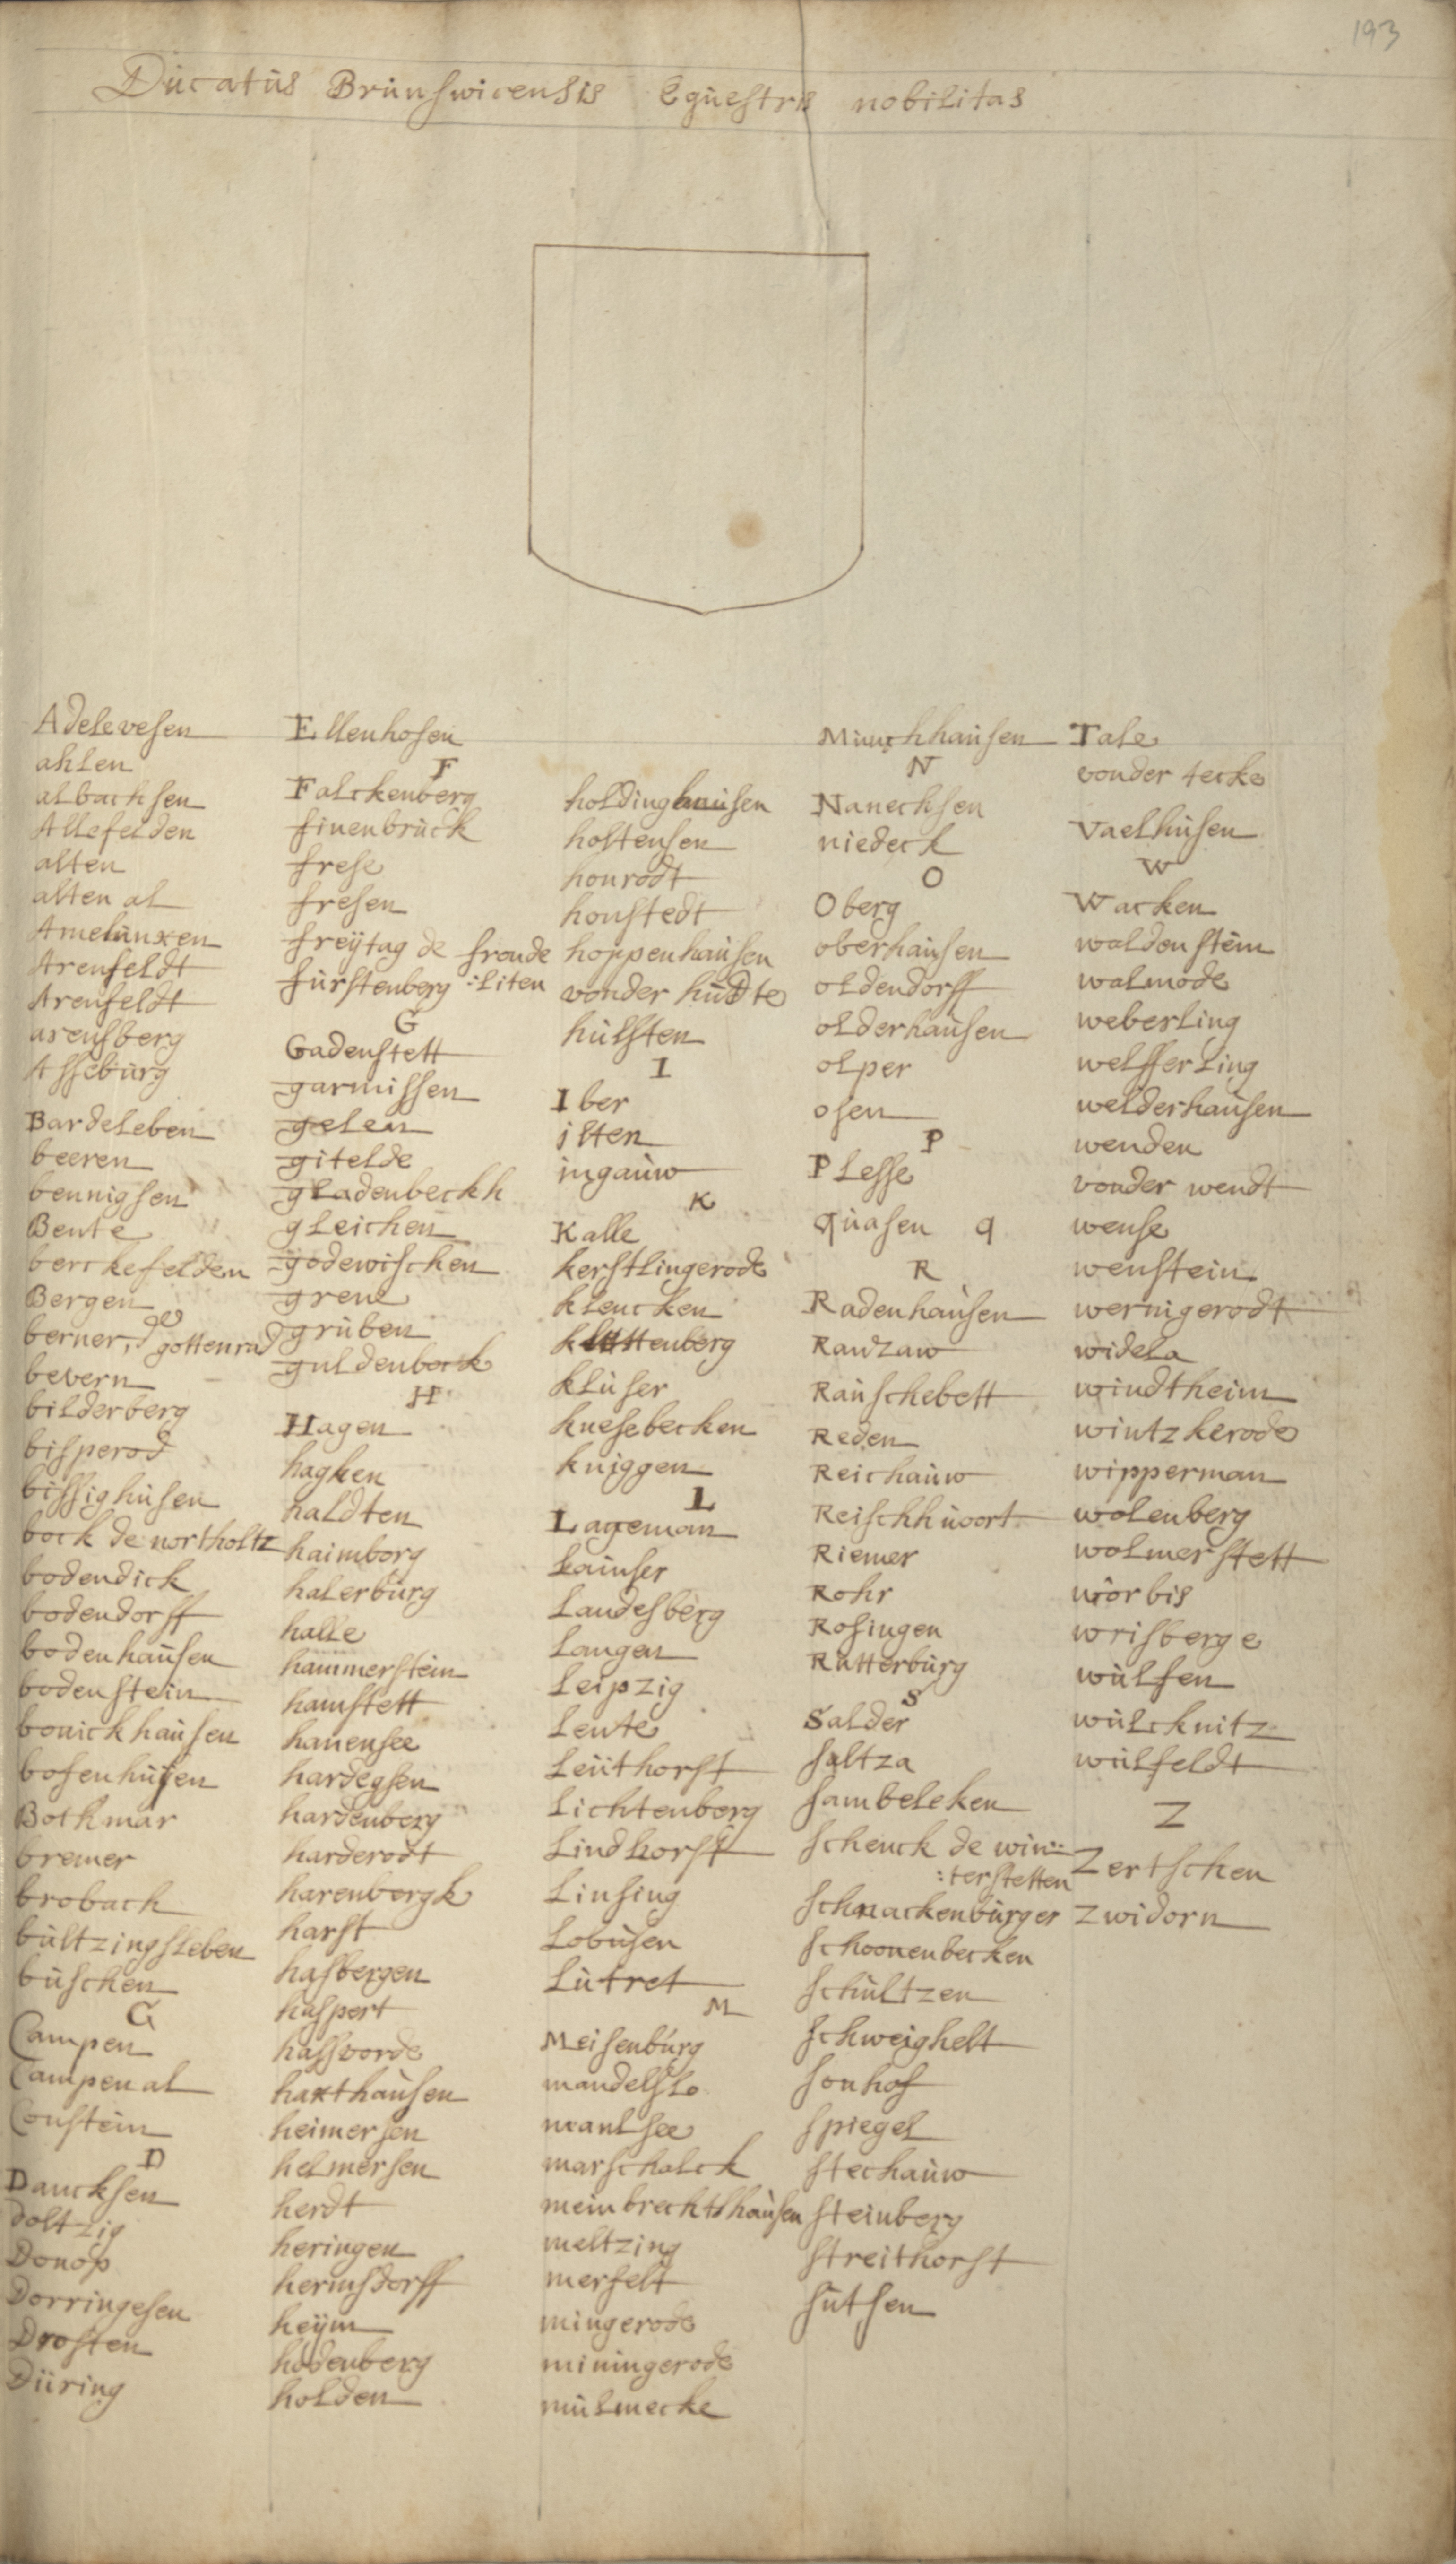 193
Ducatus Brunswicensis Equestris nobilitas
Adelevesen
ahlen
albachsen
Allefelden
alten
alten al
Amelunxen
Arenfeldt
Arenfeldt
arensberg
Asseburg
Bardeleben
beeren
bennigsen
Bente
berckefelden
Bergen
berner, de gottenrad
bevern
bilderberg
bisperod
bissighusen
bock de northoltz
bodendick
bodendorff
bodenhausen
bodenstein
bonickhausen
bosenhusen
Bothmar
bremer
brobach
bultzingsleben
buschen
C
Campen
Campen al
Constein
D
Dancksen
doltzig
Donop
Dorringesen
Drosten
Düring
Ellenhosen
F
Falckenberg
finenbruck
frese
fresen
freÿtag de fronde
furstenberg :liten
G
Gadenstett
garmissen
gelen
gitelde
gladenbeckh
gleichen
godewischen
grene
gruben
guldenbeck
H
Hagen
hagken
haldten
haimborg
halerburg
halle
hammerstein
hamstett
hanensee
hardegsen
hardenberg
harderodt
harenbergk
harst
hasbergen
haspert
hassvorde
haxthausen
heimersen
helmersen
herdt
heringen
hermsdorff
heÿm
hodenberg
holden
holdinghausen
holtensen
honrodt
honstedt
hoppenhausen
vonder hudte
hulsten
I
Iber
ilten
ingauw
K
Kalle
kerstlingerode
klencken
klettenberg
kluser
knesebecken
kniggen
L
Lageman
Lauser
Landesberg
Langen
Leipzig
Lente
Leuthorst
Lichtenberg
Lindhorst
Linsing
Lobusen
Lutret
M
Meisenburg
mandelslo
mansee
marschalck
meinbrechtshausen
meltzing
merfelt
mingerode
miningerode
mulmecke
Munchhausen
N
Nanechsen
niedeck
O
Oberg
oberhausen
oldendorff
olderhausen
olper
osen
P
Plesse
quasen q
R
Radenhausen
Ranzaw
Rauschebett
Reden
Reichauw
Reischhuoort
Riemer
Rohr
Rosingen
Rutterburg
S
Salder
saltza
sambeleken
schenck de win:
:terstetten
schnackenburger
schoonenbecken
schultzen
schweighelt
sonhof
spiegel
stechauw
steinberg
streithorst
sutsen
Tale
vonder tecke
Vaelhusen
W
Wacken
waldenstein
walmode
weberling
welfferling
welderhausen
wenden
vonder wendt
wense
wenstein
wernigerodt
widela
windtheim
wintzkerode
wipperman
wolenberg
wolmerstett
worbis
wrisberge
wulfen
wulcknitz
wulfeldt
Z
Zertschen
zwidorn